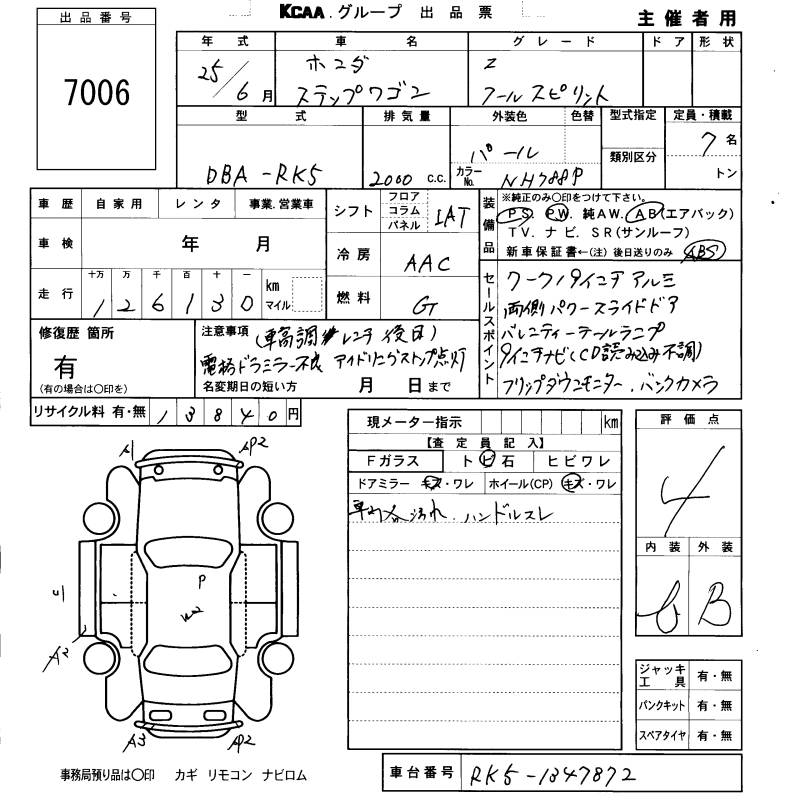 KCAA.グループ 出品票
主催者用
出品番号
7006
年式 車名 グレード ドア 形状
25/6月 ホンダ Z
ステップワゴン クールスピリット
型式 排気量 外装色 色替 型式指定 定員・積載
類別区分
DBA-RK5 2000 c.c. パール 7名
カラーNo. NH788P トン
車歴 自家用 レンタ 事業.営業車
車検 年 月
走行 十万 万 千 百 十 一 km マイル
1 2 6 1 3 0
シフト フロア コラム パネル IAT
冷房 AAC
燃料 G
装備品
※純正のみ〇印をつけて下さい。
PS PW 純AW. AB(エアバック)
TV. ナビ. SR(サンルーフ)
新車保証書←(注) 後日送りのみ ABS
セールスポイント
ワーク19インチアルミ
両側パワースライドドア
バレンティーテールランプ
9インチナビ(CD読み込み不調)
フリップダウンモニター.バックカメラ
修復歴 箇所
有
(有の場合は〇印を)
注意事項 (車高調レンチ後日)
電格ドアミラー不良 アイドリングストップ点灯
名変期日の短い方 月 日まで
リサイクル料 有・無 13840円
現メーター指示 km
【査定員記入】
Fガラス トビ石 ヒビワレ
ドアミラー キズ・ワレ ホイール(CP) キズ・ワレ
車内汚れ.ハンドルスレ
評価点
4
内装 外装
B
A1 AP2
P
W2
A2
A3 AP2
ジャッキ工具 有・無
パンクキット 有・無
スペアタイヤ 有・無
事務局預り品は〇印 カギ リモコン ナビロム
車台番号 RK5-1347872